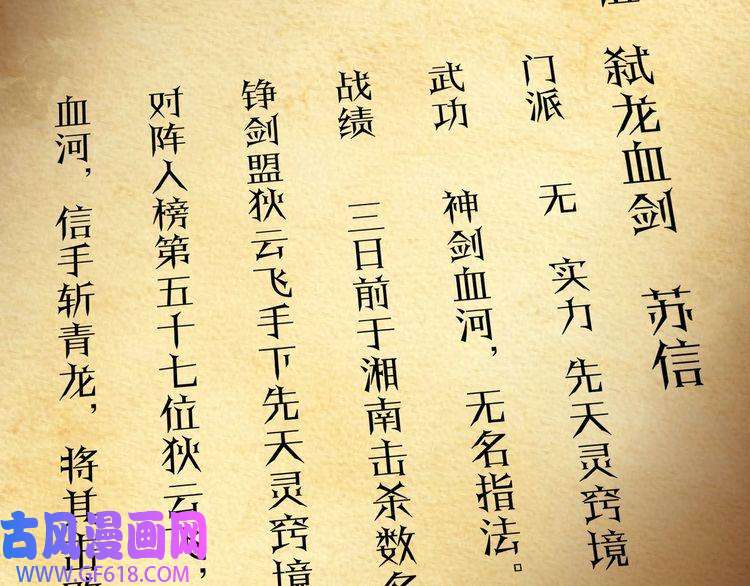 弑龙血剑 苏信
门派 无 实力 先天灵窍境
武功 神剑血河，无名指法。
战绩 三日前于湘南击杀数名
铮剑盟狄云飞手下先天灵窍境
对阵人榜第五十七位狄云飞，
血河，信手斩青龙，将其击
古风漫画网
WWW.GF618.COM